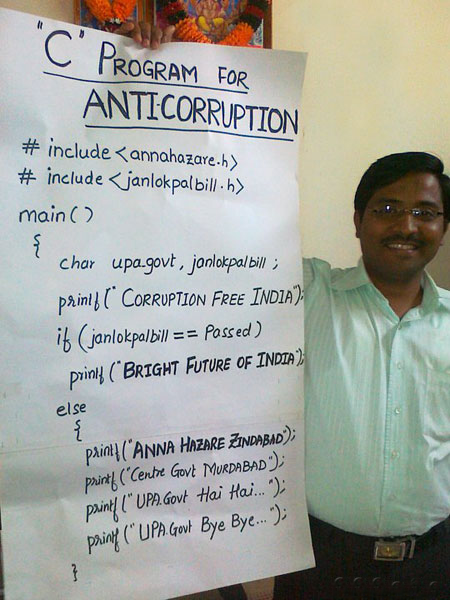 "C" PROGRAM FOR
ANTI-CORRUPTION
# include <annahazare.h>
# include <janlokpalbill.h>
main()
{
char upa.govt, janlokpalbill ;
printf(" CORRUPTION FREE INDIA");
if (janlokpalbill == Passed)
printf ("BRIGHT FUTURE OF INDIA");
else
{
printf("ANNA HAZARE ZINDABAD");
printf("Centre Govt MURDABAD");
printf ("UPA.Govt Hai Hai...");
printf ("UPA.Govt Bye Bye...");
}